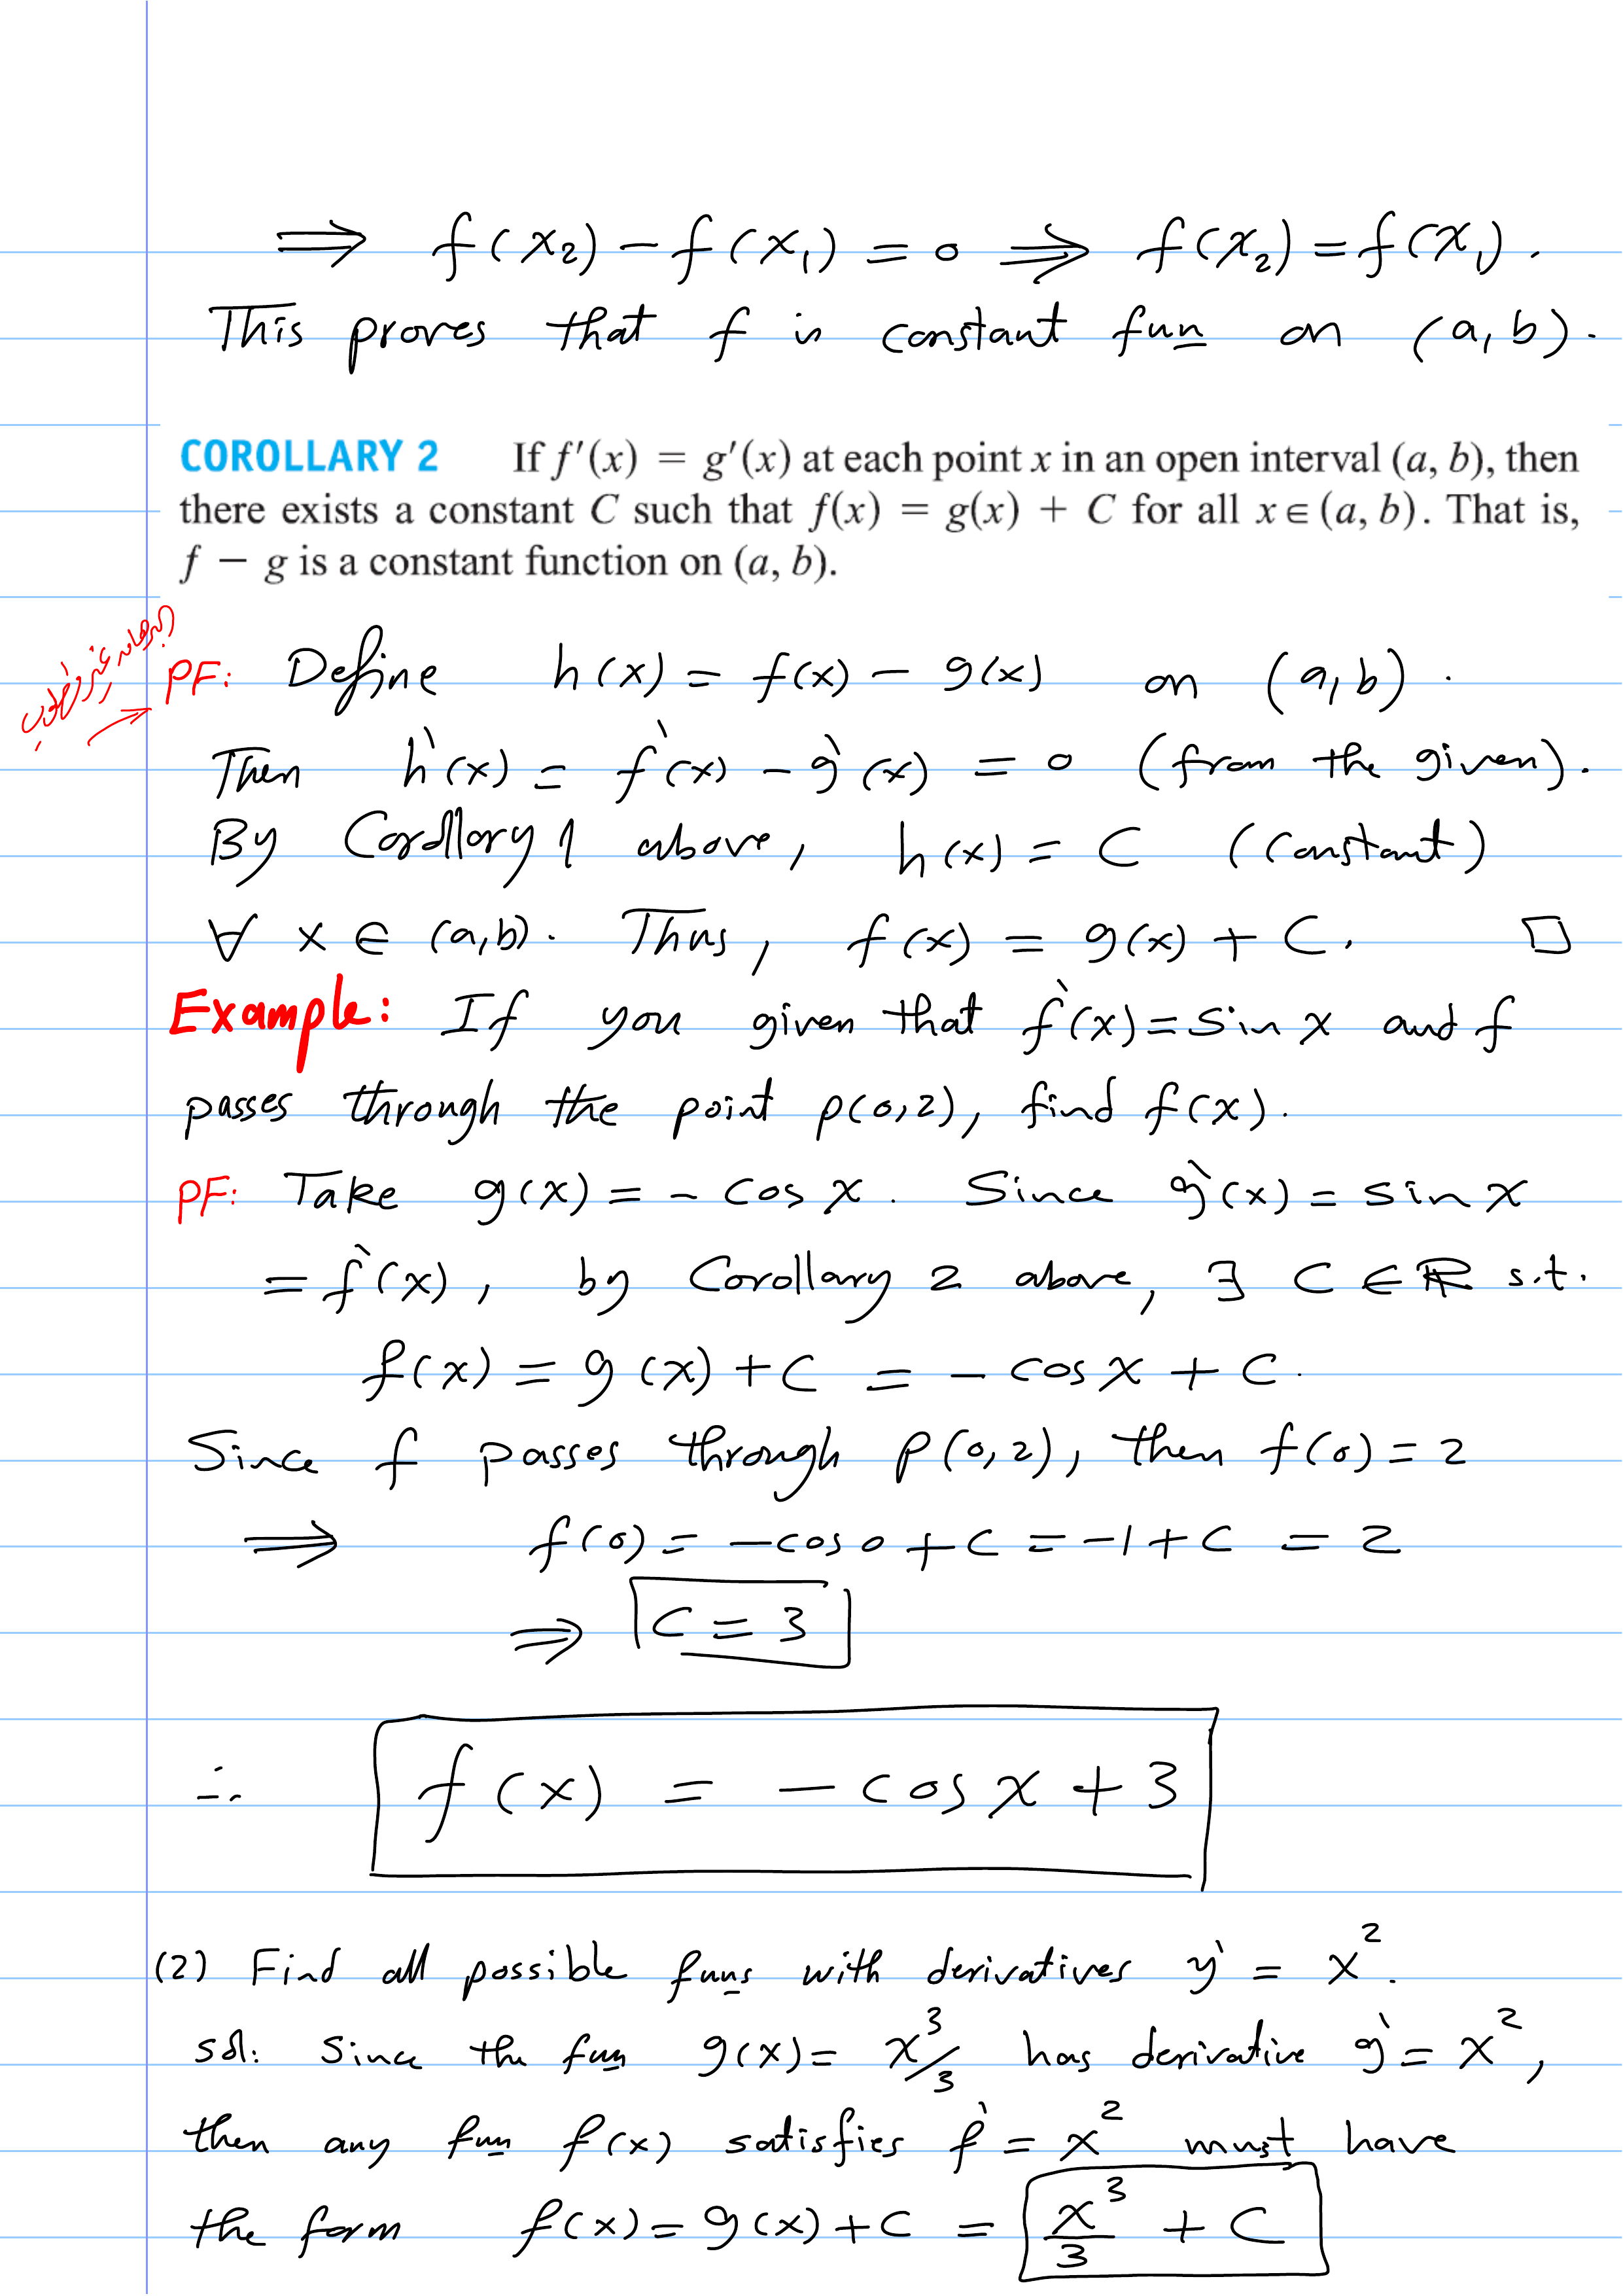 ⟹ f(x₂) − f(x₁) = 0 ⟹ f(x₂) = f(x₁).
This proves that f is constant fun on (a,b).
COROLLARY 2 If f′(x) = g′(x) at each point x in an open interval (a, b), then
there exists a constant C such that f(x) = g(x) + C for all x ∈ (a, b). That is,
f − g is a constant function on (a, b).
البرهان غير مطلوب
PF: Define h(x) = f(x) − g(x) on (a,b).
Then h′(x) = f′(x) − g′(x) = 0 (from the given).
By Corollary 1 above, h(x) = C (constant)
∀ x ∈ (a,b). Thus, f(x) = g(x) + C. □
Example: If you given that f′(x) = sin x and f
passes through the point p(0,2), find f(x).
PF: Take g(x) = − cos x. Since g′(x) = sin x
= f′(x), by Corollary 2 above, ∃ C ∈ ℝ s.t.
f(x) = g(x) + C = − cos x + C.
Since f passes through P(0,2), then f(0) = 2
⟹ f(0) = −cos 0 + C = −1 + C = 2
⟹ C = 3
∴ f(x) = − cos x + 3
(2) Find all possible funs with derivatives y′ = x².
sol: Since the fun g(x) = x³/3 has derivative g′ = x²,
then any fun f(x) satisfies f′ = x² must have
the form f(x) = g(x) + C = x³/3 + C